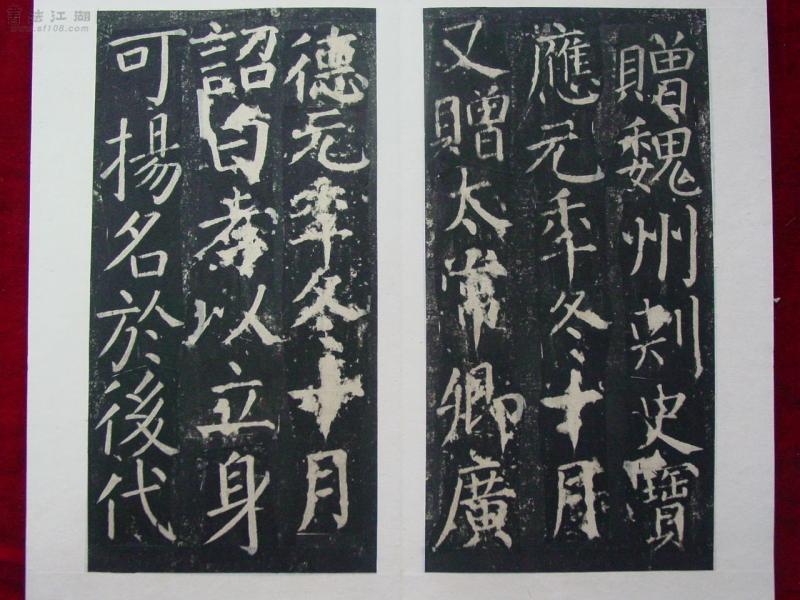 贈魏州刺史寶
應元年冬十月
又贈太常卿廣
德元年冬十月
詔曰孝以立身
可揚名於後代
書法江湖
www.sf108.com